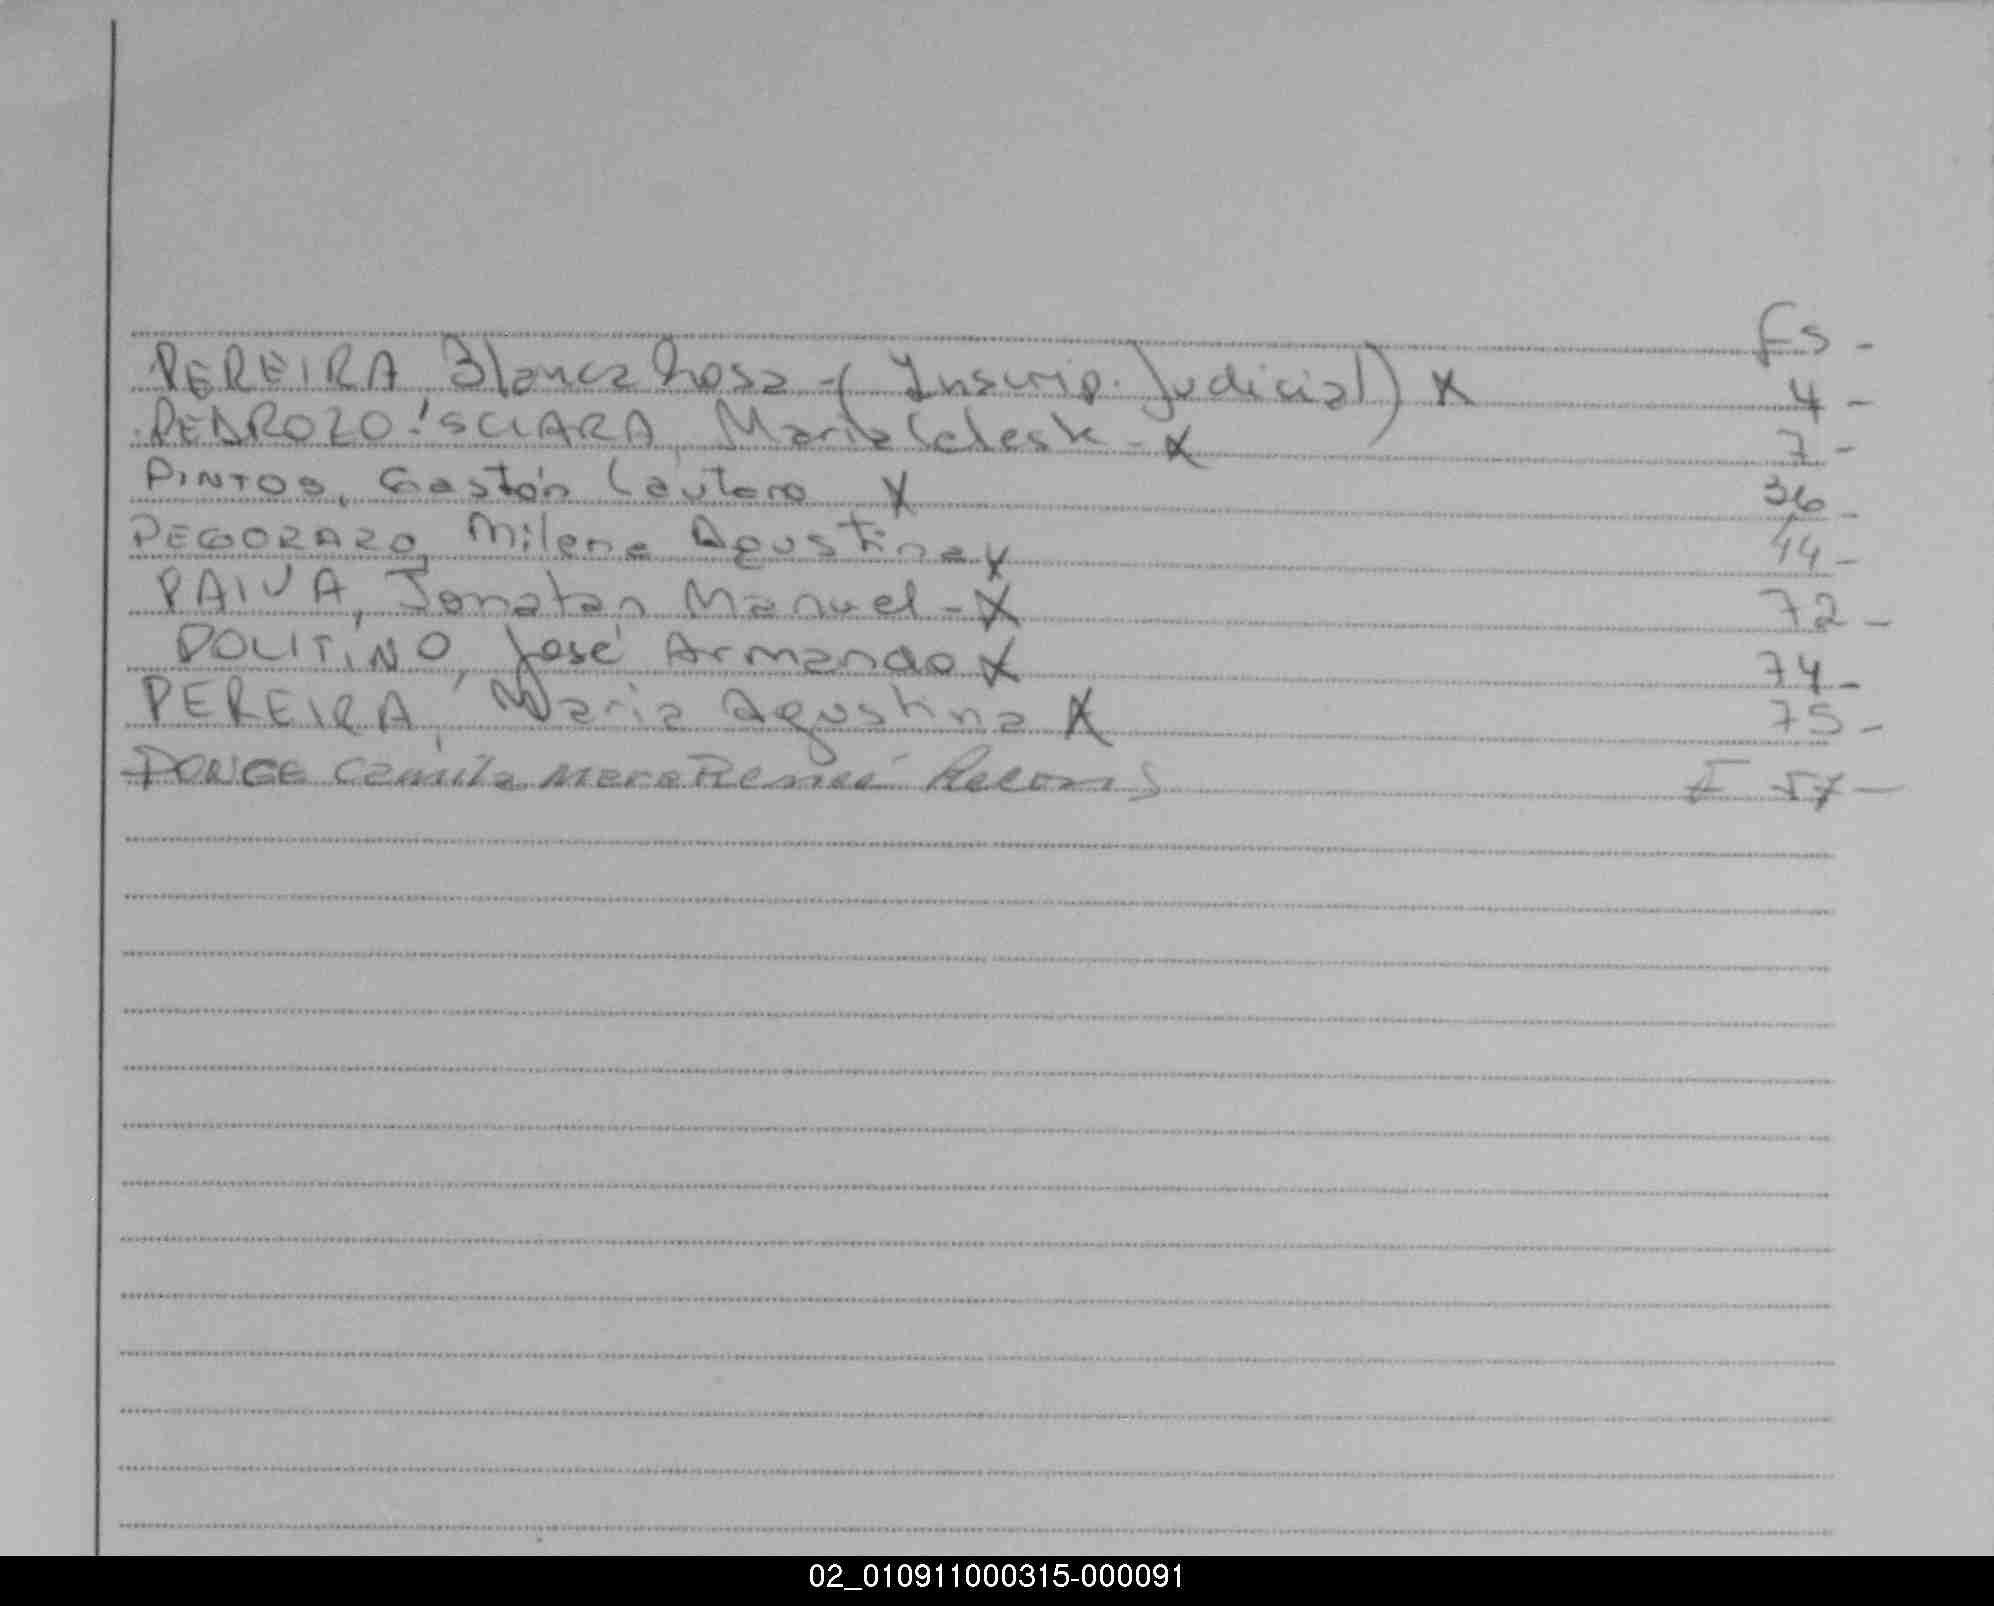 Fs -
PEREIRA Blanca Rosa - (Inscrip. Judicial) X 4 -
PEDROZO SCIARA, Maria Celeste - X 7 -
PINTOS, Gastón Lautaro X 36 -
PEGORARO, Milena Agustina X 44 -
PAIVA, Jonatan Manuel - X 72 -
POLITINO, José Armando X 74 -
PEREIRA, Maria Agustina X 75 -
PONCE Camila Mara Reneé Recon F 57 -
02_010911000315-000091